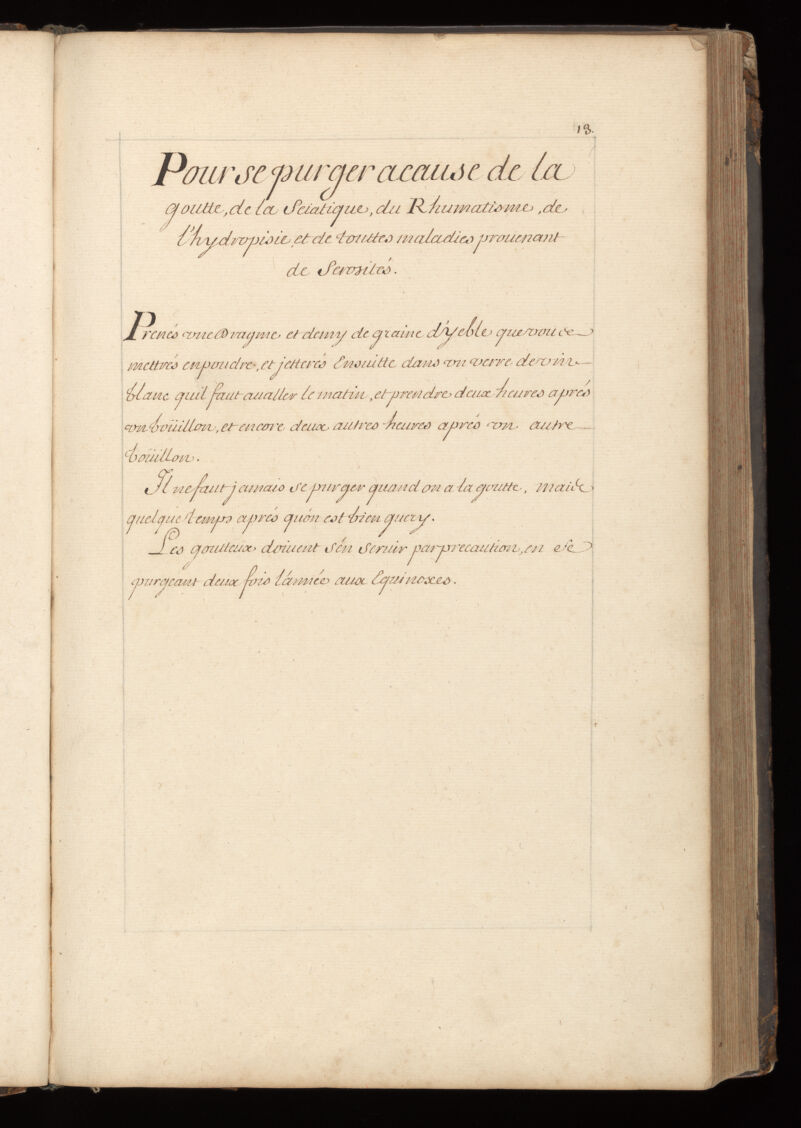 13.
Pour se purger acause de la
goutte, de la Sciatique, du Rhumatisme, de
l'hydropisie, et de touttes maladies prouenant
de Serosités.
Prenés une Dragme et demy de graine d'yeble que vous
mettrés en poudre, et jetterés Ensuitte dans un verre de vin
blanc quil faut aualler le matin, et prendre deux heures aprés
un boüillon, et encore deux autres heures aprés un autre
boüillon.
Il ne faut jamais se purger quand on a la goutte, mais
quelque temps aprés qu'on est bien guery.
Les goutteux doiuent s'en Seruir par precaution, en se
purgeant deux fois l'année aux Equinoxes.